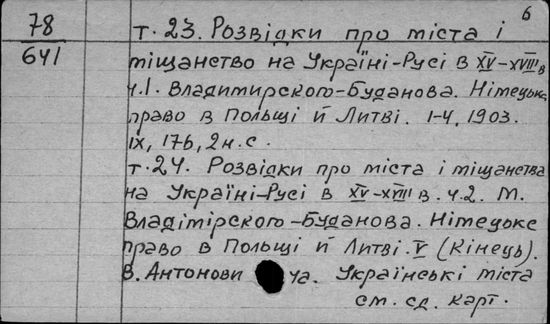 6
78
641
т. 23. Розвідки про міста і
міщанство на Україні-Русі в XV-XVIII в
ч.1. Владимирского-Буданова. Німецьке
право в Польщі й Литві. 1-4. 1903.
IX, 176, 2 н. с.
т. 24. Розвідки про міста і міщанства
на Україні-Русі в XV-XVIII в. ч.2. М.
Владімірского-Буданова. Німецьке
право в Польщі й Литві. V (Кінець).
В. Антонови ча. Українські міста
см. сд. карт.